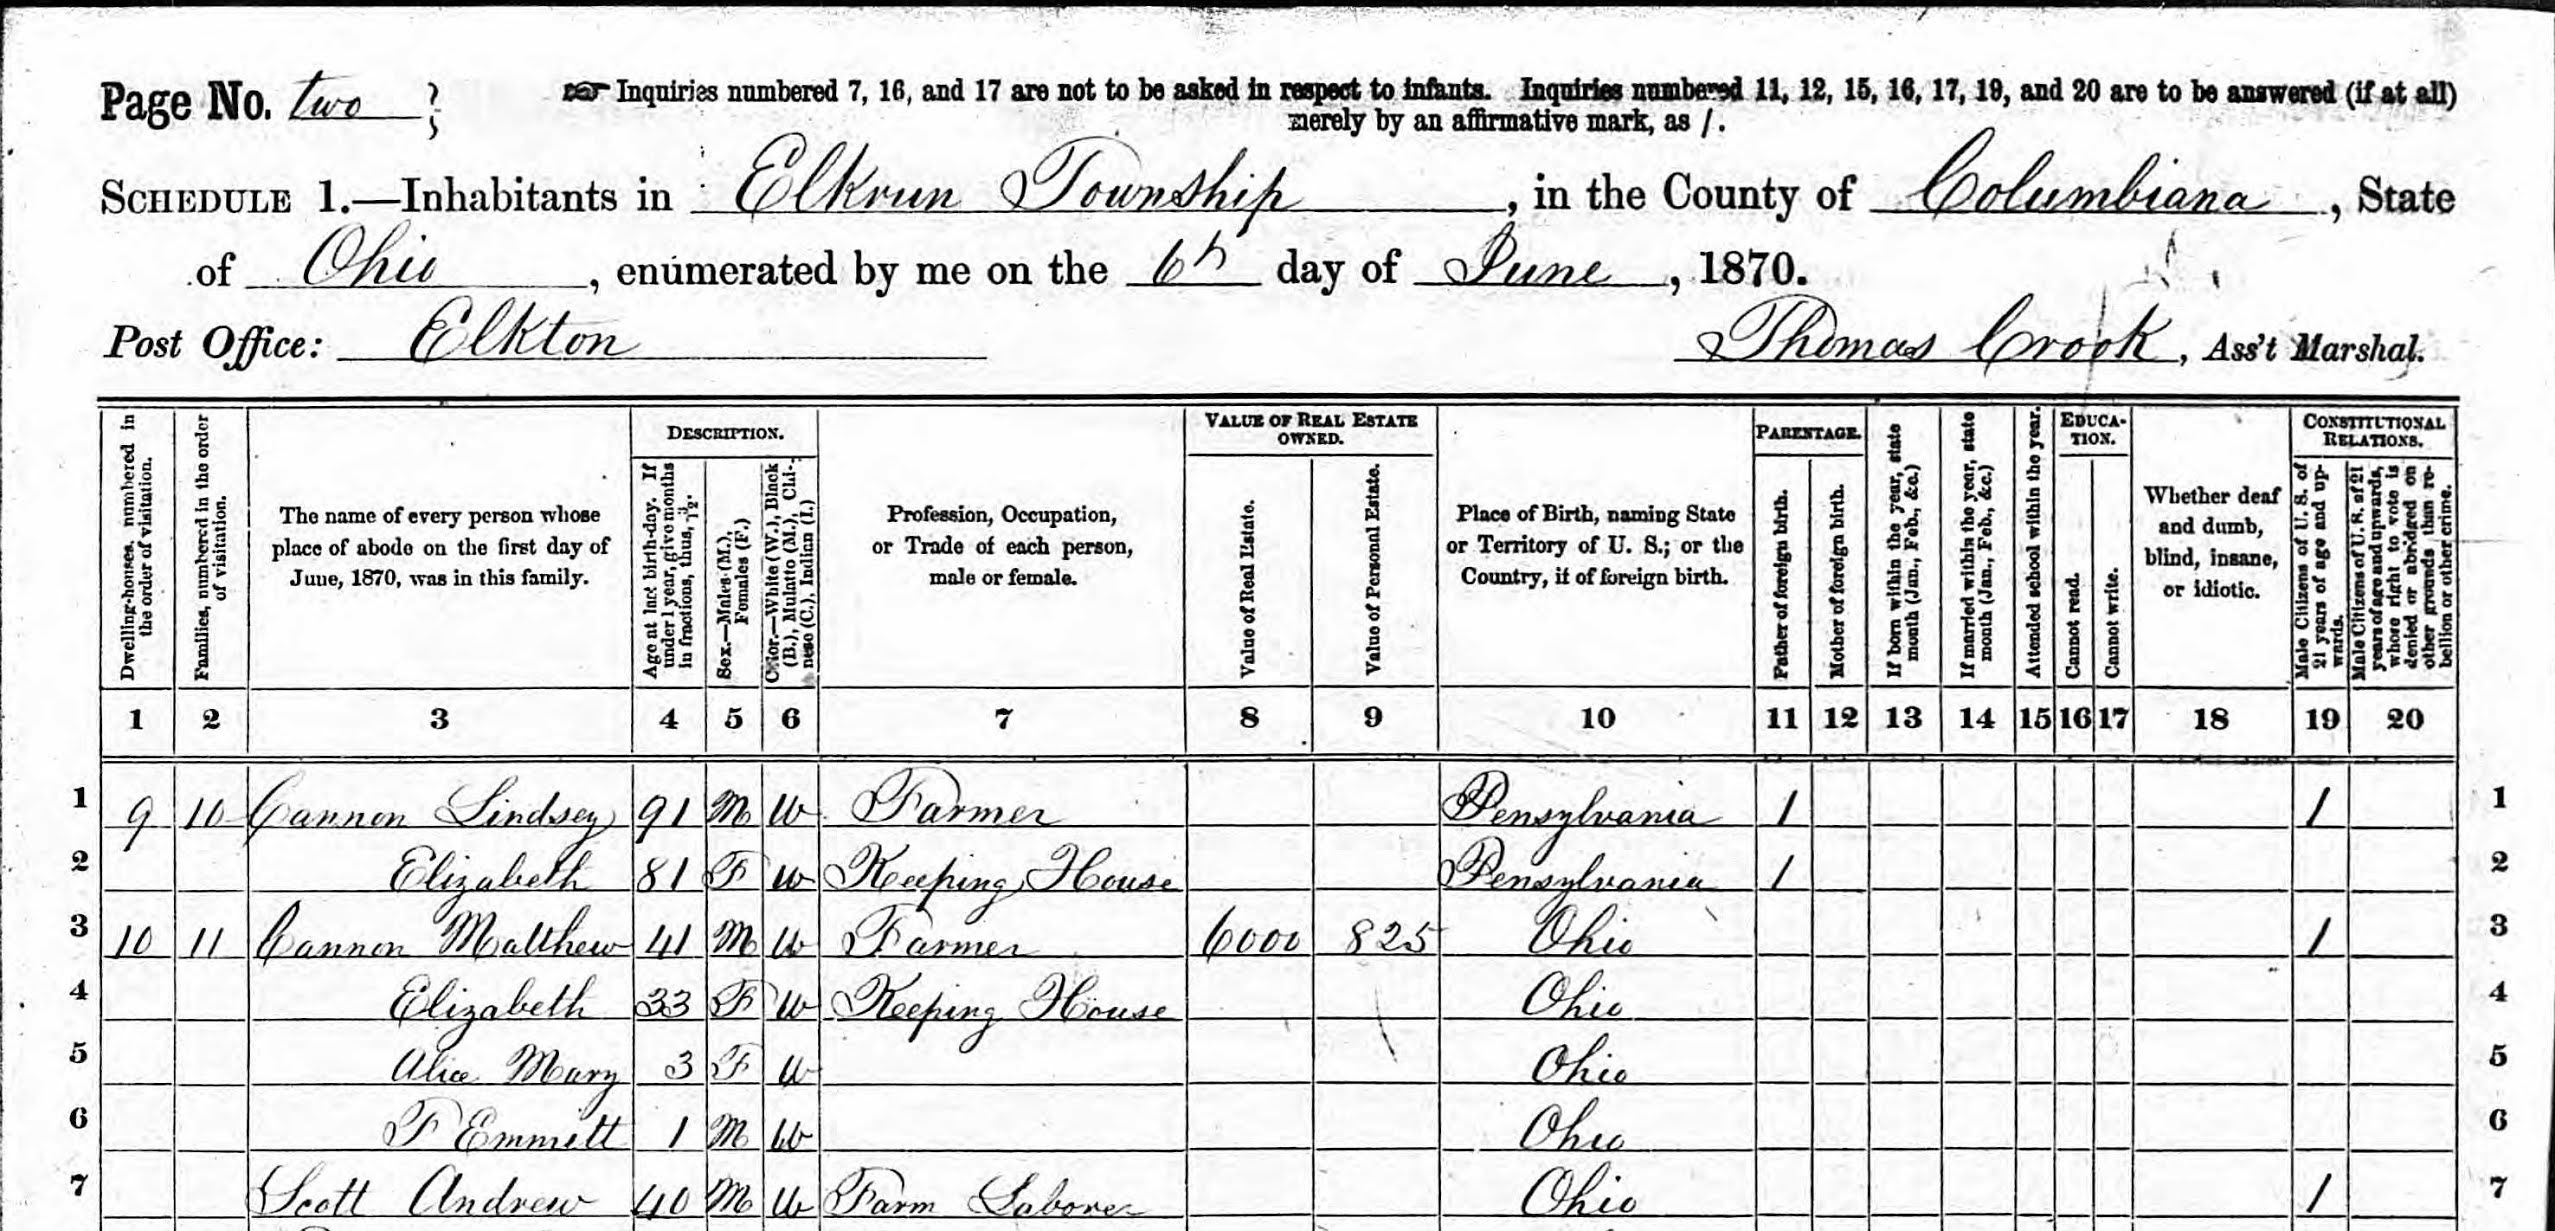 Page No. two
☞ Inquiries numbered 7, 16, and 17 are not to be asked in respect to infants. Inquiries numbered 11, 12, 15, 16, 17, 19, and 20 are to be answered (if at all)
merely by an affirmative mark, as /.
SCHEDULE 1.—Inhabitants in Elkrun Township, in the County of Columbiana, State
of Ohio, enumerated by me on the 6th day of June, 1870.
Post Office: Elkton
Thomas Crook, Ass't Marshal.
Dwelling-houses, numbered in the order of visitation.
Families, numbered in the order of visitation.
The name of every person whose place of abode on the first day of June, 1870, was in this family.
DESCRIPTION.
Age at last birth-day. If under 1 year, give months in fractions, thus, 3/12.
Sex.—Males (M.), Females (F.)
Color.—White (W.), Black (B.), Mulatto (M.), Chinese (C.), Indian (I.)
Profession, Occupation, or Trade of each person, male or female.
VALUE OF REAL ESTATE OWNED.
Value of Real Estate.
Value of Personal Estate.
Place of Birth, naming State or Territory of U. S.; or the Country, if of foreign birth.
PARENTAGE.
Father of foreign birth.
Mother of foreign birth.
If born within the year, state month (Jan., Feb., &c.)
If married within the year, state month (Jan., Feb., &c.)
Attended school within the year.
EDUCATION.
Cannot read.
Cannot write.
Whether deaf and dumb, blind, insane, or idiotic.
CONSTITUTIONAL RELATIONS.
Male Citizens of U. S. of 21 years of age and upwards.
Male Citizens of U. S. of 21 years of age and upwards, whose right to vote is denied or abridged on other grounds than rebellion or other crime.
1 2 3 4 5 6 7 8 9 10 11 12 13 14 15 16 17 18 19 20
1 9 10 Cannon Lindsey 91 M W Farmer Pensylvania / / 1
2 Elizabeth 81 F W Keeping House Pensylvania / 2
3 10 11 Cannon Matthew 41 M W Farmer 6000 825 Ohio / 3
4 Elizabeth 33 F W Keeping House Ohio 4
5 Alice Mary 3 F W Ohio 5
6 F Emmett 1 M W Ohio 6
7 Scott Andrew 40 M W Farm Laborer Ohio / 7